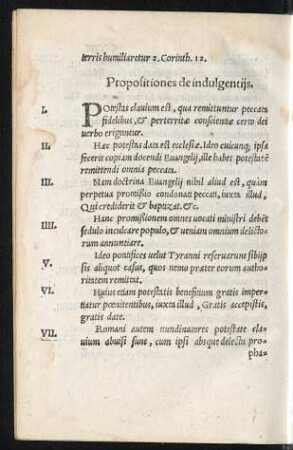 terris humiliaretur 2. Corinth. 12.
Propositiones de indulgentijs.
I. POtestas clauium est, qua remittuntur peccata
fidelibus, & perterritæ conscientiæ certo dei
uerbo eriguntur.
II. Hæc potestas data est ecclesiæ. Ideo cuicunq; ipsa
fecerit copiam docendi Euangelij, ille habet potestatē
remittendi omnia peccata.
III. Nam doctrina Euangelij nihil aliud est, quàm
perpetua promissio condonati peccati, iuxta illud,
Qui crediderit & baptizat. &c.
IIII. Hanc promissionem omnes uocati ministri debēt
sedulo inculcare populo, & ueniam omnium delictorum
annuntiare.
V. Ideo pontifices uelut Tyranni reseruarunt sibijpsis
aliquot casus, quos nemo præter eorum authoritatem
remittat.
VI. Huius etiam potestatis beneficium gratis impertiatur
pœnitentibus, iuxta illud, Gratis accepistis,
gratis date.
VII. Romani autem nundinatores potestate clauium
abusi sunt, cum ipsi absque delectu pro-
pha-